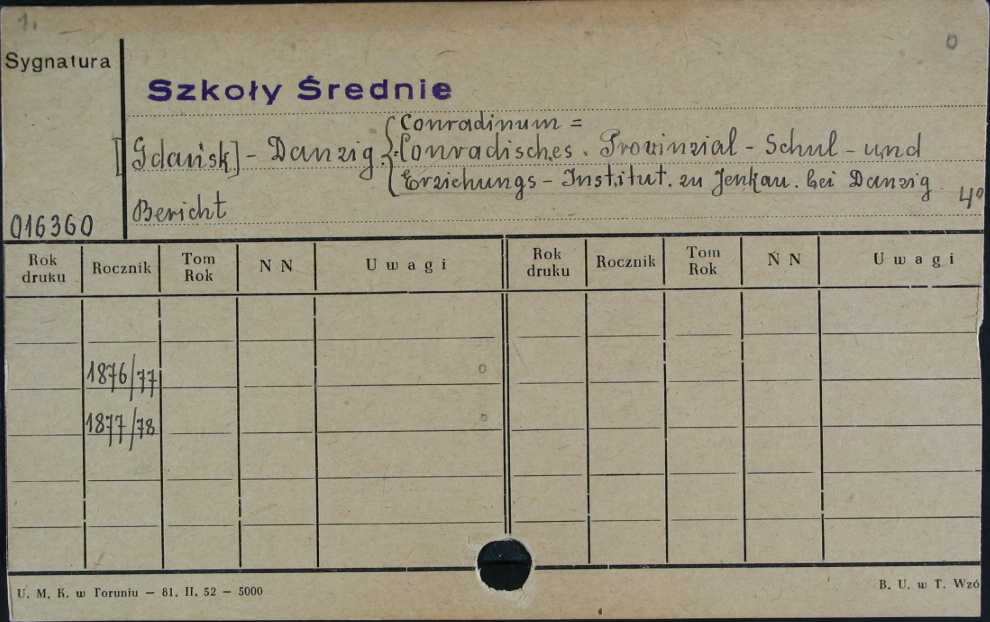 1.
0
Sygnatura
Szkoły Średnie
Conradinum =
[Gdańsk] - Danzig { Conradisches. Prowinzial - Schul - und
Erziehungs - Institut. zu Jenkau. bei Danzig
Bericht 4°
016360
Rok druku Rocznik Tom Rok N N Uwagi Rok druku Rocznik Tom Rok N N Uwagi
1876/77 0
1877/78 0
U. M. K. w Toruniu — 81. II. 52 — 5000 B. U. w T. Wzó